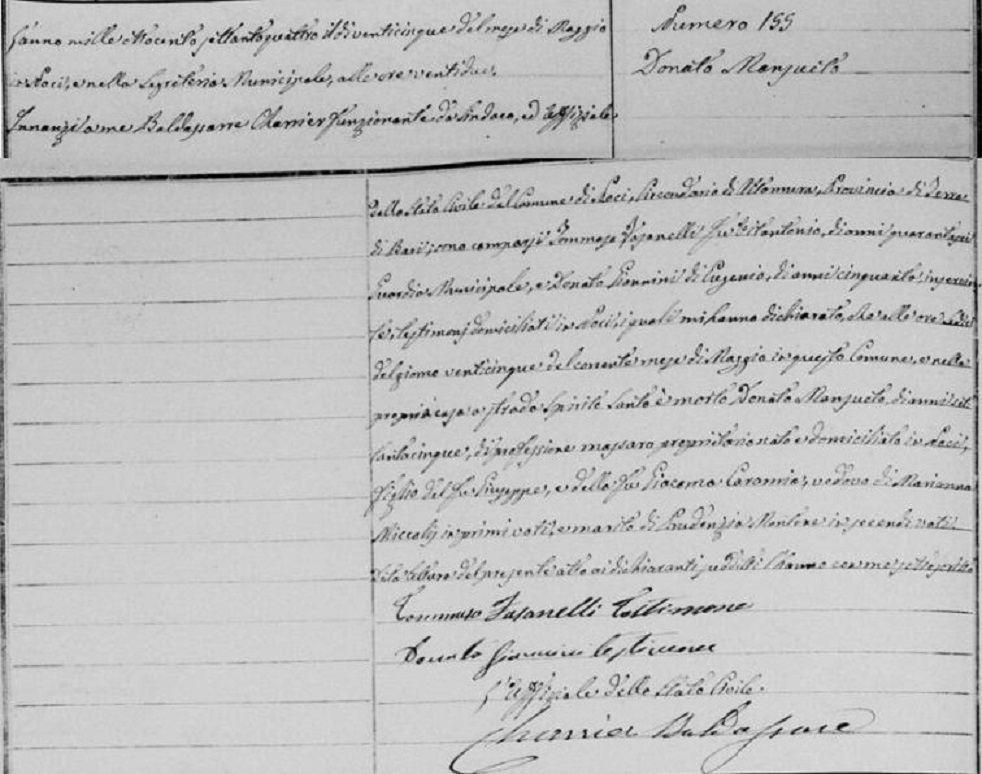 L'anno mille ottocento settantaquattro il dì venticinque del mese di Maggio
in Noci, e nella Segreteria Municipale, alle ore ventidue.
Innanzi a me Baldassarre Charrier funzionante da Sindaco, ed Uffiziale
Numero 155
Donato Mansueto
dello Stato Civile del Comune di Noci, Circondario di Altamura, Provincia di Terra
di Bari, sono comparsi Tommaso Fasanelli fu Vitantonio, di anni quarantasei
Guardia Municipale, e Donato Giannini di Eugenio, di anni cinquanta, inservien
te, testimonj domiciliati in Noci, i quali mi hanno dichiarato, che alle ore
del giorno venticinque del corrente mese di Maggio in questo Comune, e nella
propria casa a strada Spirito Santo è morto Donato Mansueto, di anni set
tantacinque, di professione massaro proprietario nato e domiciliato in Noci,
figlio del fu Giuseppe, e della fu Giacoma vedovo di Marianna
Miccolis in primi voti, e marito di Prudenzia in secondi voti.
Data lettura del presente atto ai dichiaranti suddetti l'hanno con me sottoscritto
Tommaso Fasanelli Testimone
Donato Giannini testimone
L'Uffiziale dello Stato Civile.
Charrier Baldassarre